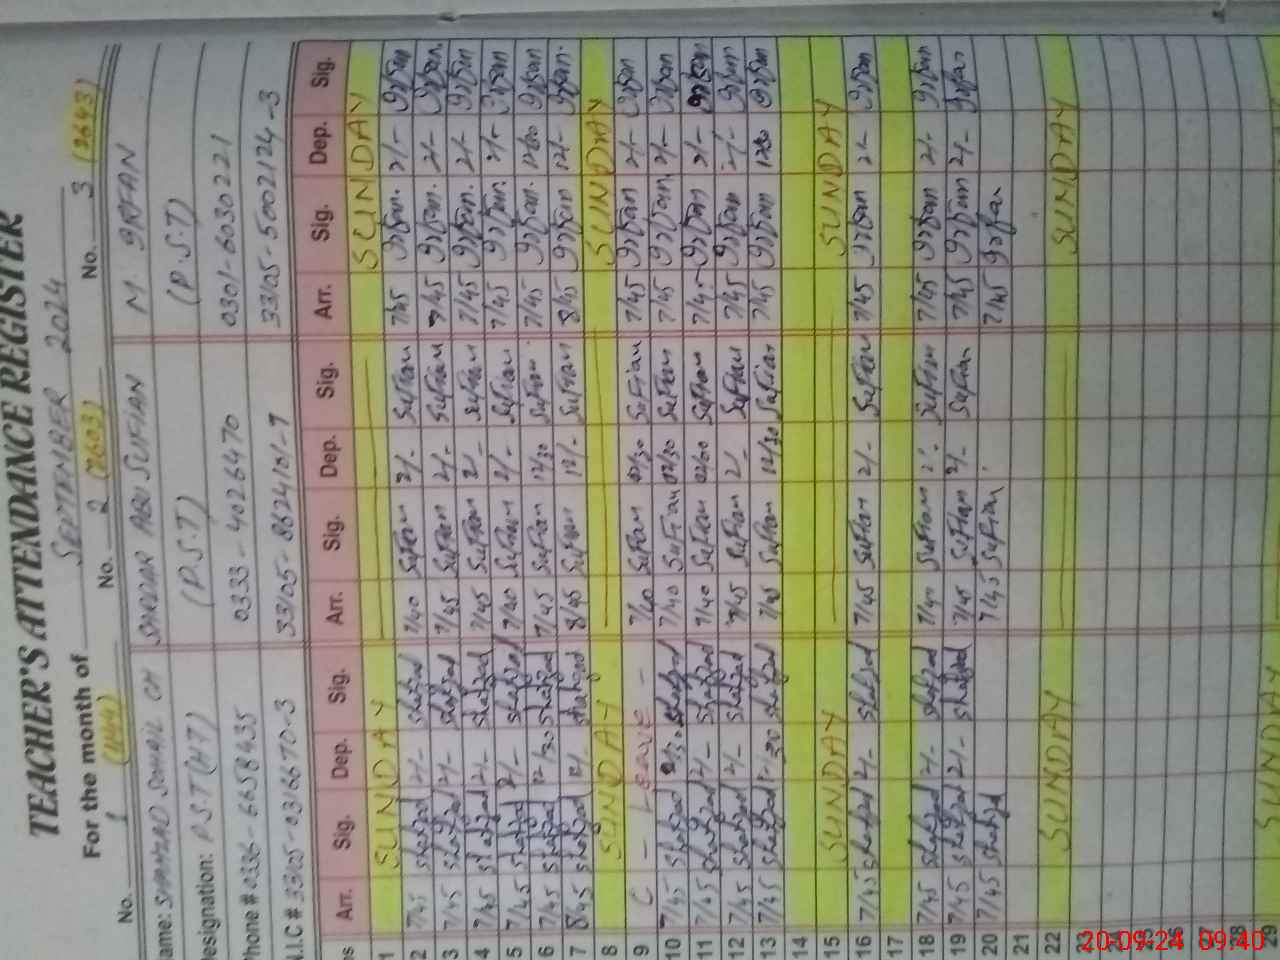 TEACHER'S ATTENDANCE REGISTER
For the month of SEPTEMBER 2024
No. 1 No. 2 (2603) No. 3 (2643)
ame: SHAHZAD SOHAIL CH SARDAR ABU SUFIAN M. IRFAN
esignation: P.S.T (HT) (P.S.T) (P.S.T)
hone # 0336-6658435 0333-4026470 0301-6030221
N.I.C # 33105-0316670-3 33105-8624101-7 33105-5002124-3
Arr. Sig. Dep. Sig. Arr. Sig. Dep. Sig. Arr. Sig. Dep. Sig.
1 SUNDAY SUNDAY
2 7/45 Shahzad 2/- Shahzad 7/40 Sufian 2/- Sufian 7/45 Irfan 2/- Irfan
3 7/45 Shahzad 2/- Shahzad 7/45 Sufian 2/- Sufian 7/45 Irfan 2/- Irfan
4 7/45 Shahzad 2/- Shahzad 7/45 Sufian 2/- Sufian 7/45 Irfan 2/- Irfan
5 7/45 Shahzad 2/- Shahzad 7/40 Sufian 2/- Sufian 7/45 Irfan 2/- Irfan
6 7/45 Shahzad 12/30 Shahzad 7/45 Sufian 12/30 Sufian 7/45 Irfan Irfan
7 8/45 Shahzad 12/- Shahzad 8/45 Sufian 12/- Sufian 8/45 Irfan 12/- Irfan
8 SUNDAY SUNDAY
9 C - Leave - 7/40 Sufian Sufian 7/45 Irfan 2/- Irfan
10 7/45 Shahzad Shahzad 7/40 Sufian 02/30 Sufian 7/45 Irfan 2/- Irfan
11 7/45 Shahzad 2/- Shahzad 7/40 Sufian Sufian 7/45 Irfan 2/- Irfan
12 7/45 Shahzad 2/- Shahzad 7/45 Sufian 2/- Sufian 7/45 Irfan 2/- Irfan
13 7/45 Shahzad Shahzad 7/45 Sufian Sufian 7/45 Irfan Irfan
14
15 SUNDAY SUNDAY
16 7/45 Shahzad 2/- Shahzad 7/45 Sufian 2/- Sufian 7/45 Irfan 2/- Irfan
17
18 7/45 Shahzad 2/- Shahzad 7/40 Sufian Sufian 7/45 Irfan 2/- Irfan
19 7/45 Shahzad 2/- Shahzad 7/45 Sufian 2/- Sufian 7/45 Irfan 2/- Irfan
20 7/45 Shahzad 7/45 Sufian 7/45 Irfan
21
22 SUNDAY SUNDAY
23
24
25
26
27
28
29 SUNDAY
20-09-24 09:40